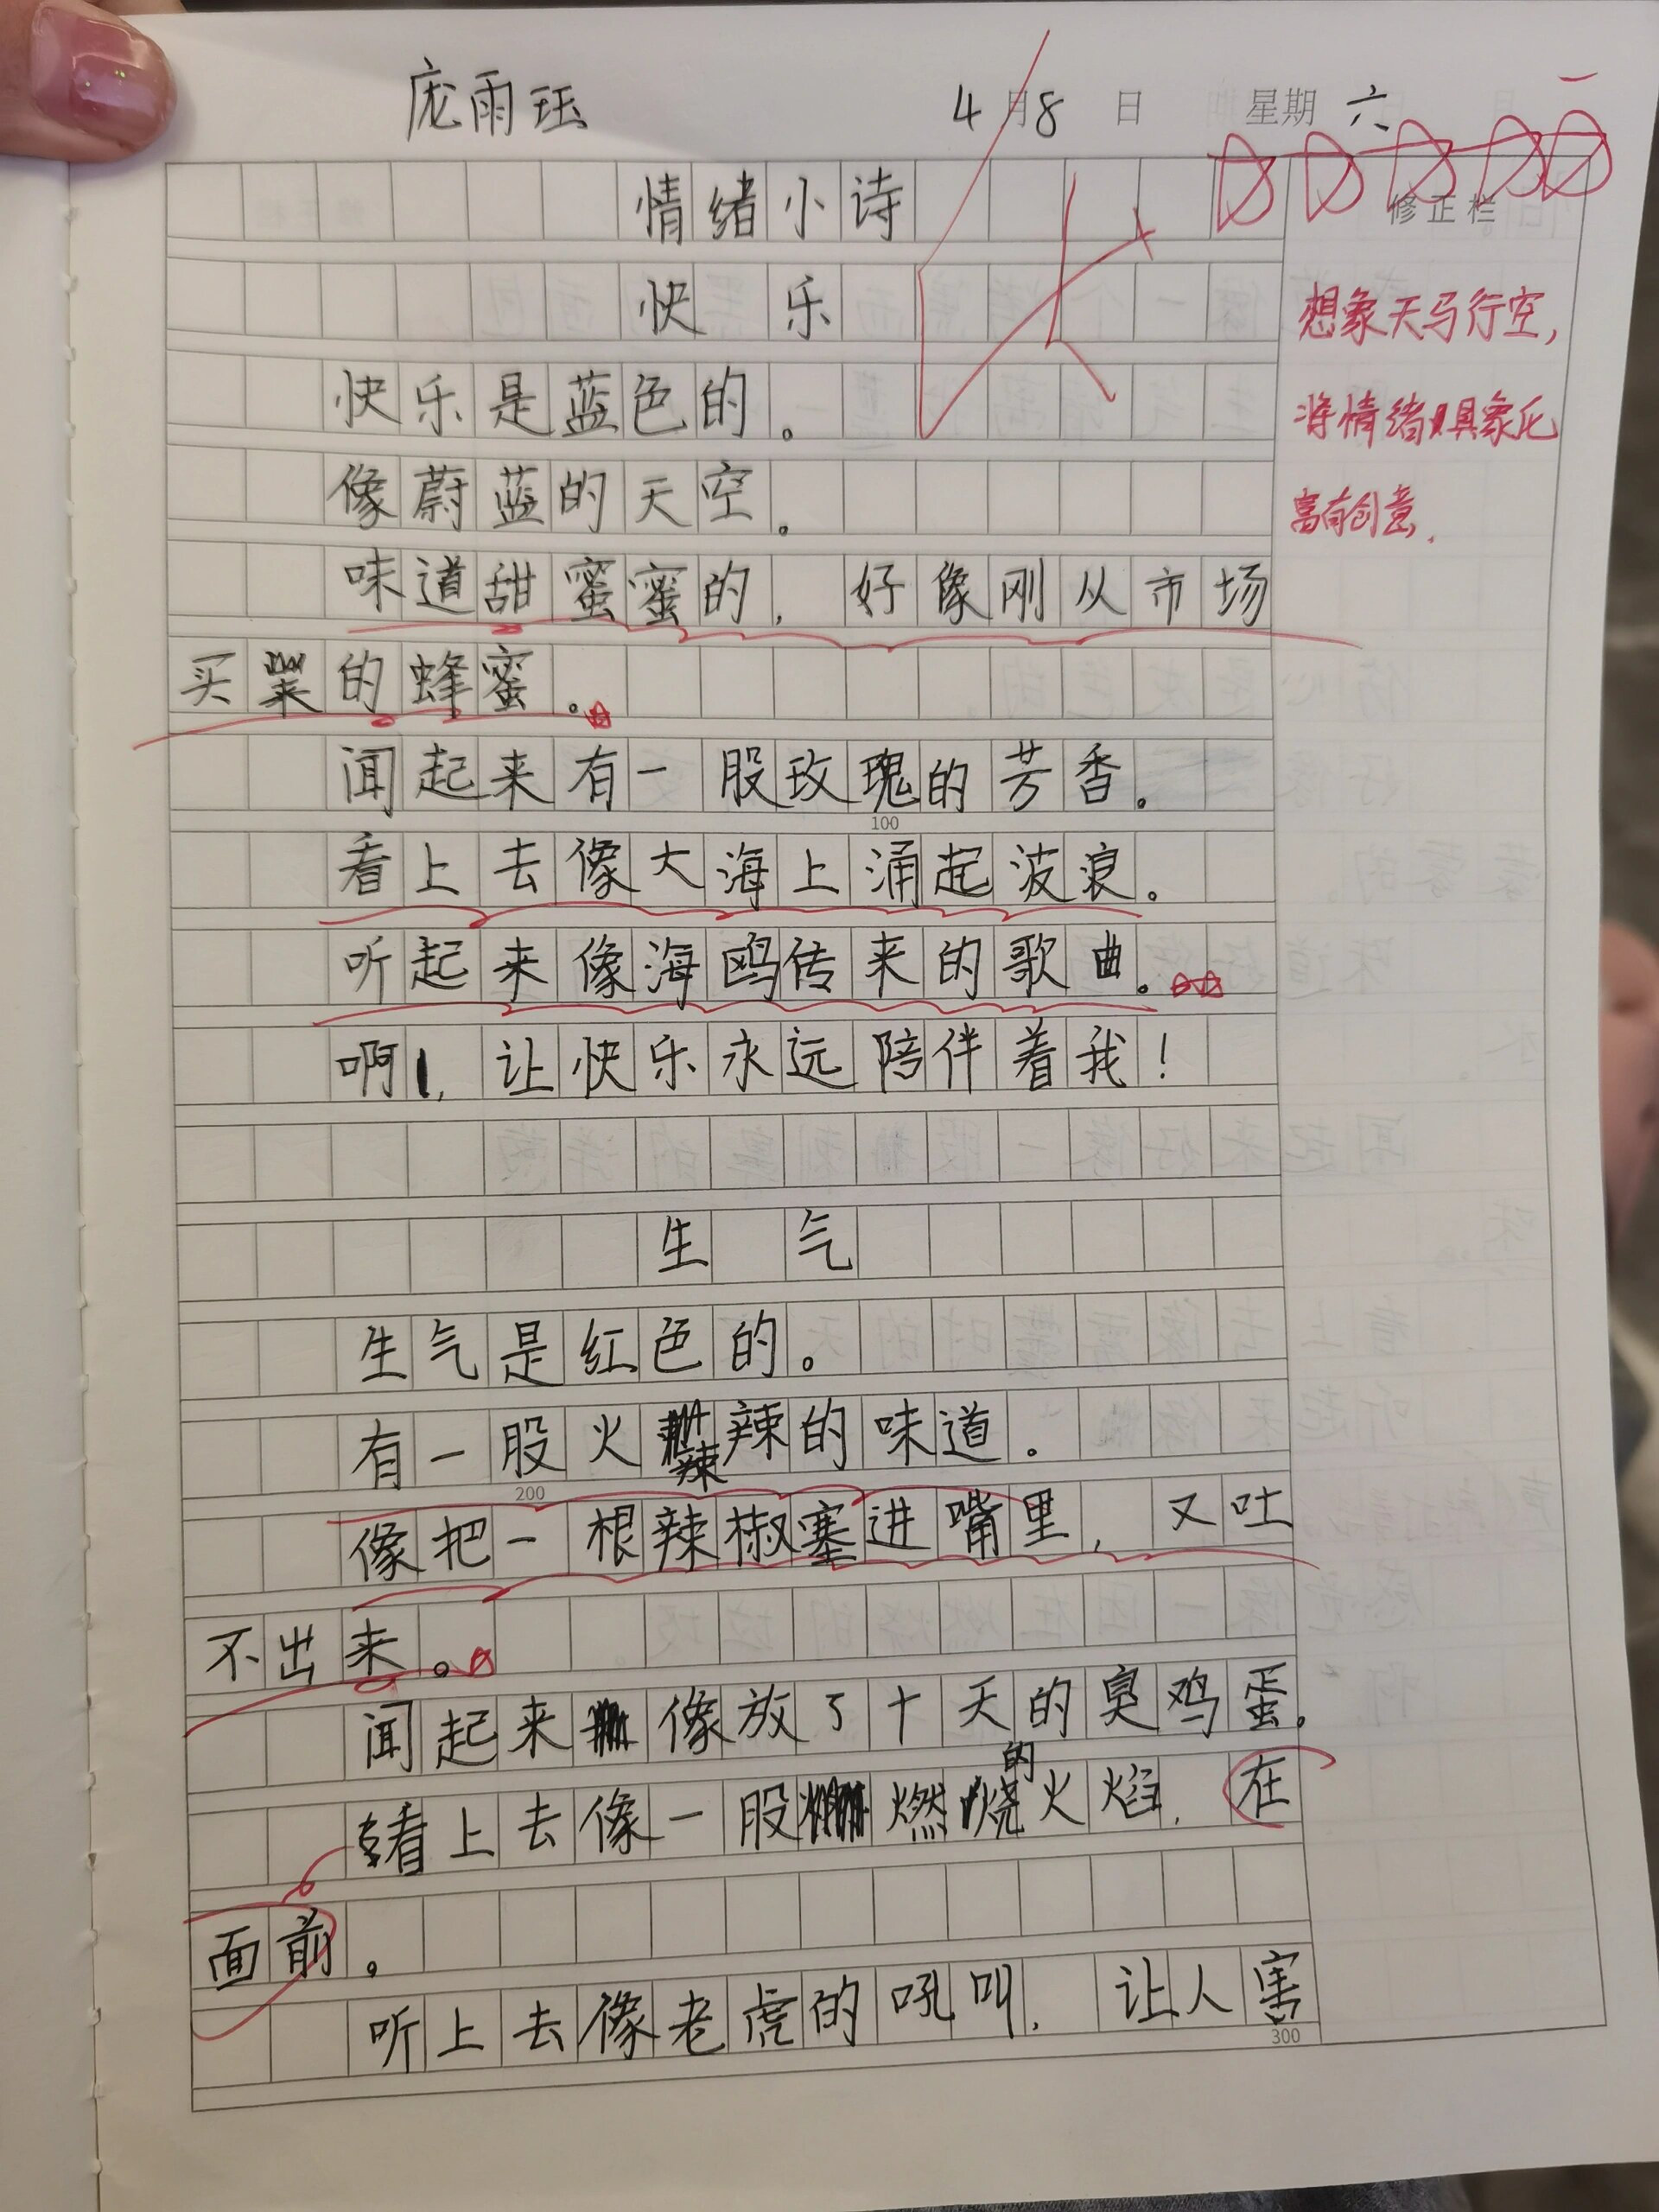 庞雨珏 4月8日 星期六
修正栏
情绪小诗
快乐
快乐是蓝色的。
像蔚蓝的天空。
味道甜蜜蜜的，好像刚从市场
买来的蜂蜜。
闻起来有一股玫瑰的芳香。
100
看上去像大海上涌起波浪。
听起来像海鸥传来的歌曲。
啊，让快乐永远陪伴着我！
生气
生气是红色的。
有一股火辣辣的味道。
200
像把一根辣椒塞进嘴里，又吐
不出来。
闻起来像放了十天的臭鸡蛋。
看上去像一股燃烧的火焰，在
面前。
听上去像老虎的吼叫，让人害
300
想象天马行空，
将情绪具象化
富有创意.